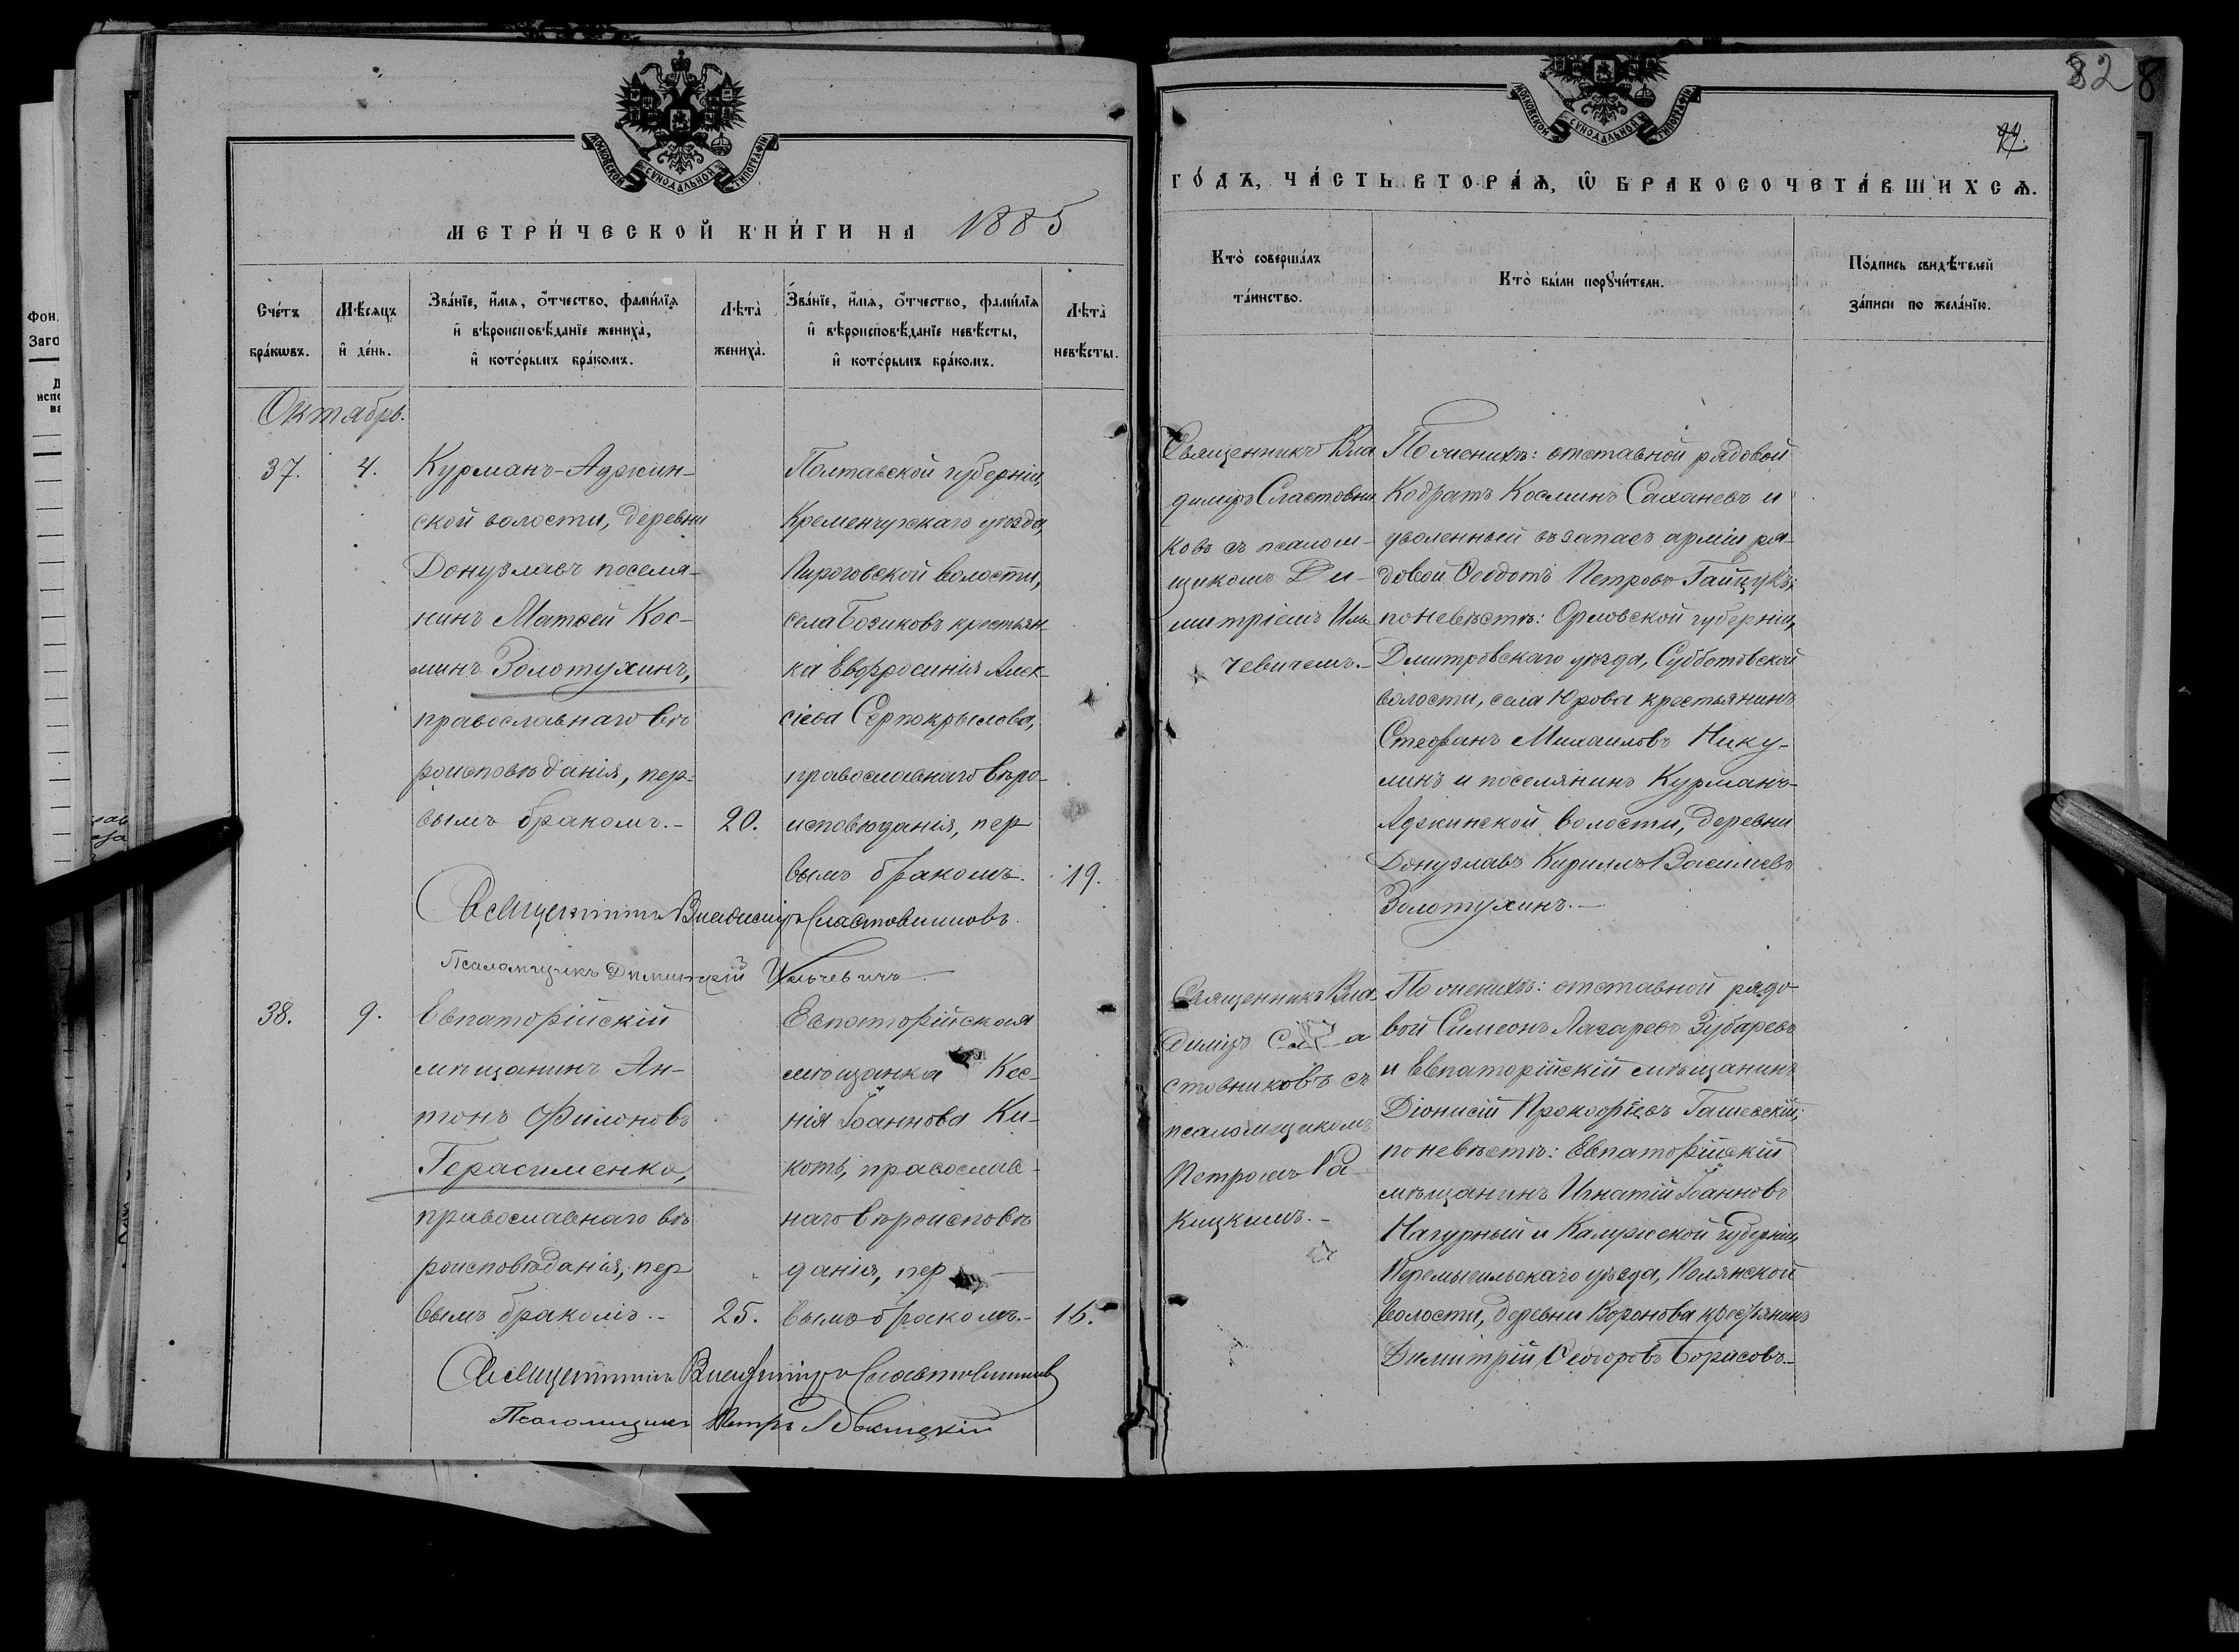 МОСКОВСКОЙ СѴНОДАЛЬНОЙ ТИПОГРАФІИ
МЕТРИ́ЧЕСКОЙ КНИ́ГИ НА 1885
Сче́тъ бра́кѡвъ.
Мѣ́сяцъ и҆ де́нь.
Зва́нїе, и҆́мя, ѻ҆́тчество, фами́лїя
и҆ вѣроисповѣ́данїе жениха̀,
и҆ кото́рымъ бра́комъ.
Лѣта̀ жениха̀.
Зва́нїе, и҆́мя, ѻ҆́тчество, фами́лїя
и҆ вѣроисповѣ́данїе невѣ́сты,
и҆ кото́рымъ бра́комъ.
Лѣта̀ невѣ́сты.
Октябрь.
37.
4.
Курманъ-Аджин-
ской волости, деревни
Донузлавъ поселя-
нинъ Матѳей Кос-
минъ Золотухинъ,
православнаго вѣ
роисповѣданія, пер-
вымъ бракомъ.-
20.
Полтавской губерніи,
Кременчугскаго уѣзда,
Пироговской волости,
села Бозиковъ крестьян-
ка Евфросинія Алек-
сіева Серпокрылова,
православнаго вѣро-
исповѣданія, пер
вымъ бракомъ.
19.
Священникъ Владиміръ Сластовниковъ.
Псаломщикъ Димитрій Ильчевичъ
38.
9.
Евпаторійскій
мѣщанинъ Ан-
тонъ Филоновъ
Герасименко,
православнаго вѣ
роисповѣданія, пер
вымъ бракомъ.-
25.
Евпаторійская
мѣщанка Ксе-
нія Іоаннова Ки-
коть, православ-
наго вѣроисповѣ
данія, пер
вымъ бракомъ.-
16.
Священникъ Владиміръ Сластовниковъ
Псаломщикъ Петръ Ракицкій
82
8
МОСКОВСКОЙ СѴНОДАЛЬНОЙ ТИПОГРАФІИ
ГО́ДЪ, ЧА́СТЬ ВТОРА́Ѧ, Ѡ҆ БРАКОСОЧЕТА́ВШИХСѦ.
Кто̀ соверша́лъ
та́инство.
Кто̀ бы́ли порꙋчи́тели.
По́дпись свидѣ́телей
за́писи по жела́нїю.
Священникъ Вла
диміръ Сластовни
ковъ съ псалом-
щикомъ Ди-
митріемъ Иль
чевичемъ.-
По женихѣ: отставной рядовой
Кодратъ Косминъ Саханевъ и
уволенный въ запасъ арміи ря-
довой Ѳеодотъ Петровъ Гайцукъ;
по невѣстѣ: Орловской губерніи,
Дмитровскаго уѣзда, Субботовской
волости, села Юрова крестьянинъ
Стефанъ Михаиловъ Нику-
линъ и поселянинъ Курманъ-
Аджинской волости, деревни
Донузлавъ Кириллъ Василіевъ
Золотухинъ.-
Священникъ Вла
диміръ Сла
стовниковъ съ
псаломщикомъ
Петромъ Ра
кицкимъ.-
По женихѣ: отставной рядо
вой Симеонъ Лазаревъ Зубаревъ
и Евпаторійскій мѣщанинъ
Діонисій Прокофіевъ Гашевскій;
по невѣстѣ: Евпаторійскій
мѣщанинъ Игнатій Іоанновъ
Нагурный и Калужской губерніи,
Перемышльскаго уѣзда, Полянской
волости, деревни Воронова крестьянинъ
Димитрій Ѳеодоровъ Борисовъ.-